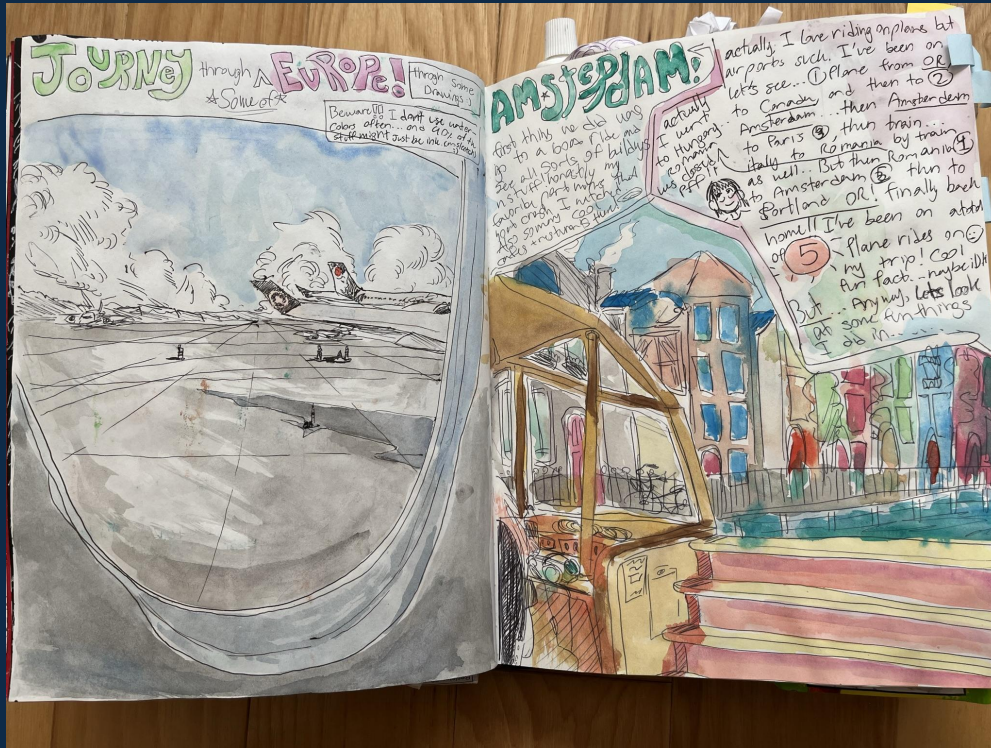 JOURNEY through EUROPE!
*Some of*
throgh some
Drawings :)
Beware!! I don't use water
colors often... and 90% of the
stuff might just be ink
AMSTERDAM!
first thing we did was
go to a boat ride and
see all sorts of buildings
n stuff honestly my
favorite part was that
boat crash I watched
also some cool
actually
I went
to Hungry
Romania
was closer
actually, I love riding on planes but
airports suck. I've been on
let's see.. ① Plane from OR
to Canada and then to ②
Amsterdam... then Amsterdam
to Paris ③, then train...
italy to Romania by train ④
as well.. But then Romania
to Amsterdam ⑤ then to
Portland OR! finally back
home!! I've been on a total
of 5 Plane rides on
my trip! Cool
fun fact.. maybe iDK
But... Anyway, lets look
at some fun things
I did in.......